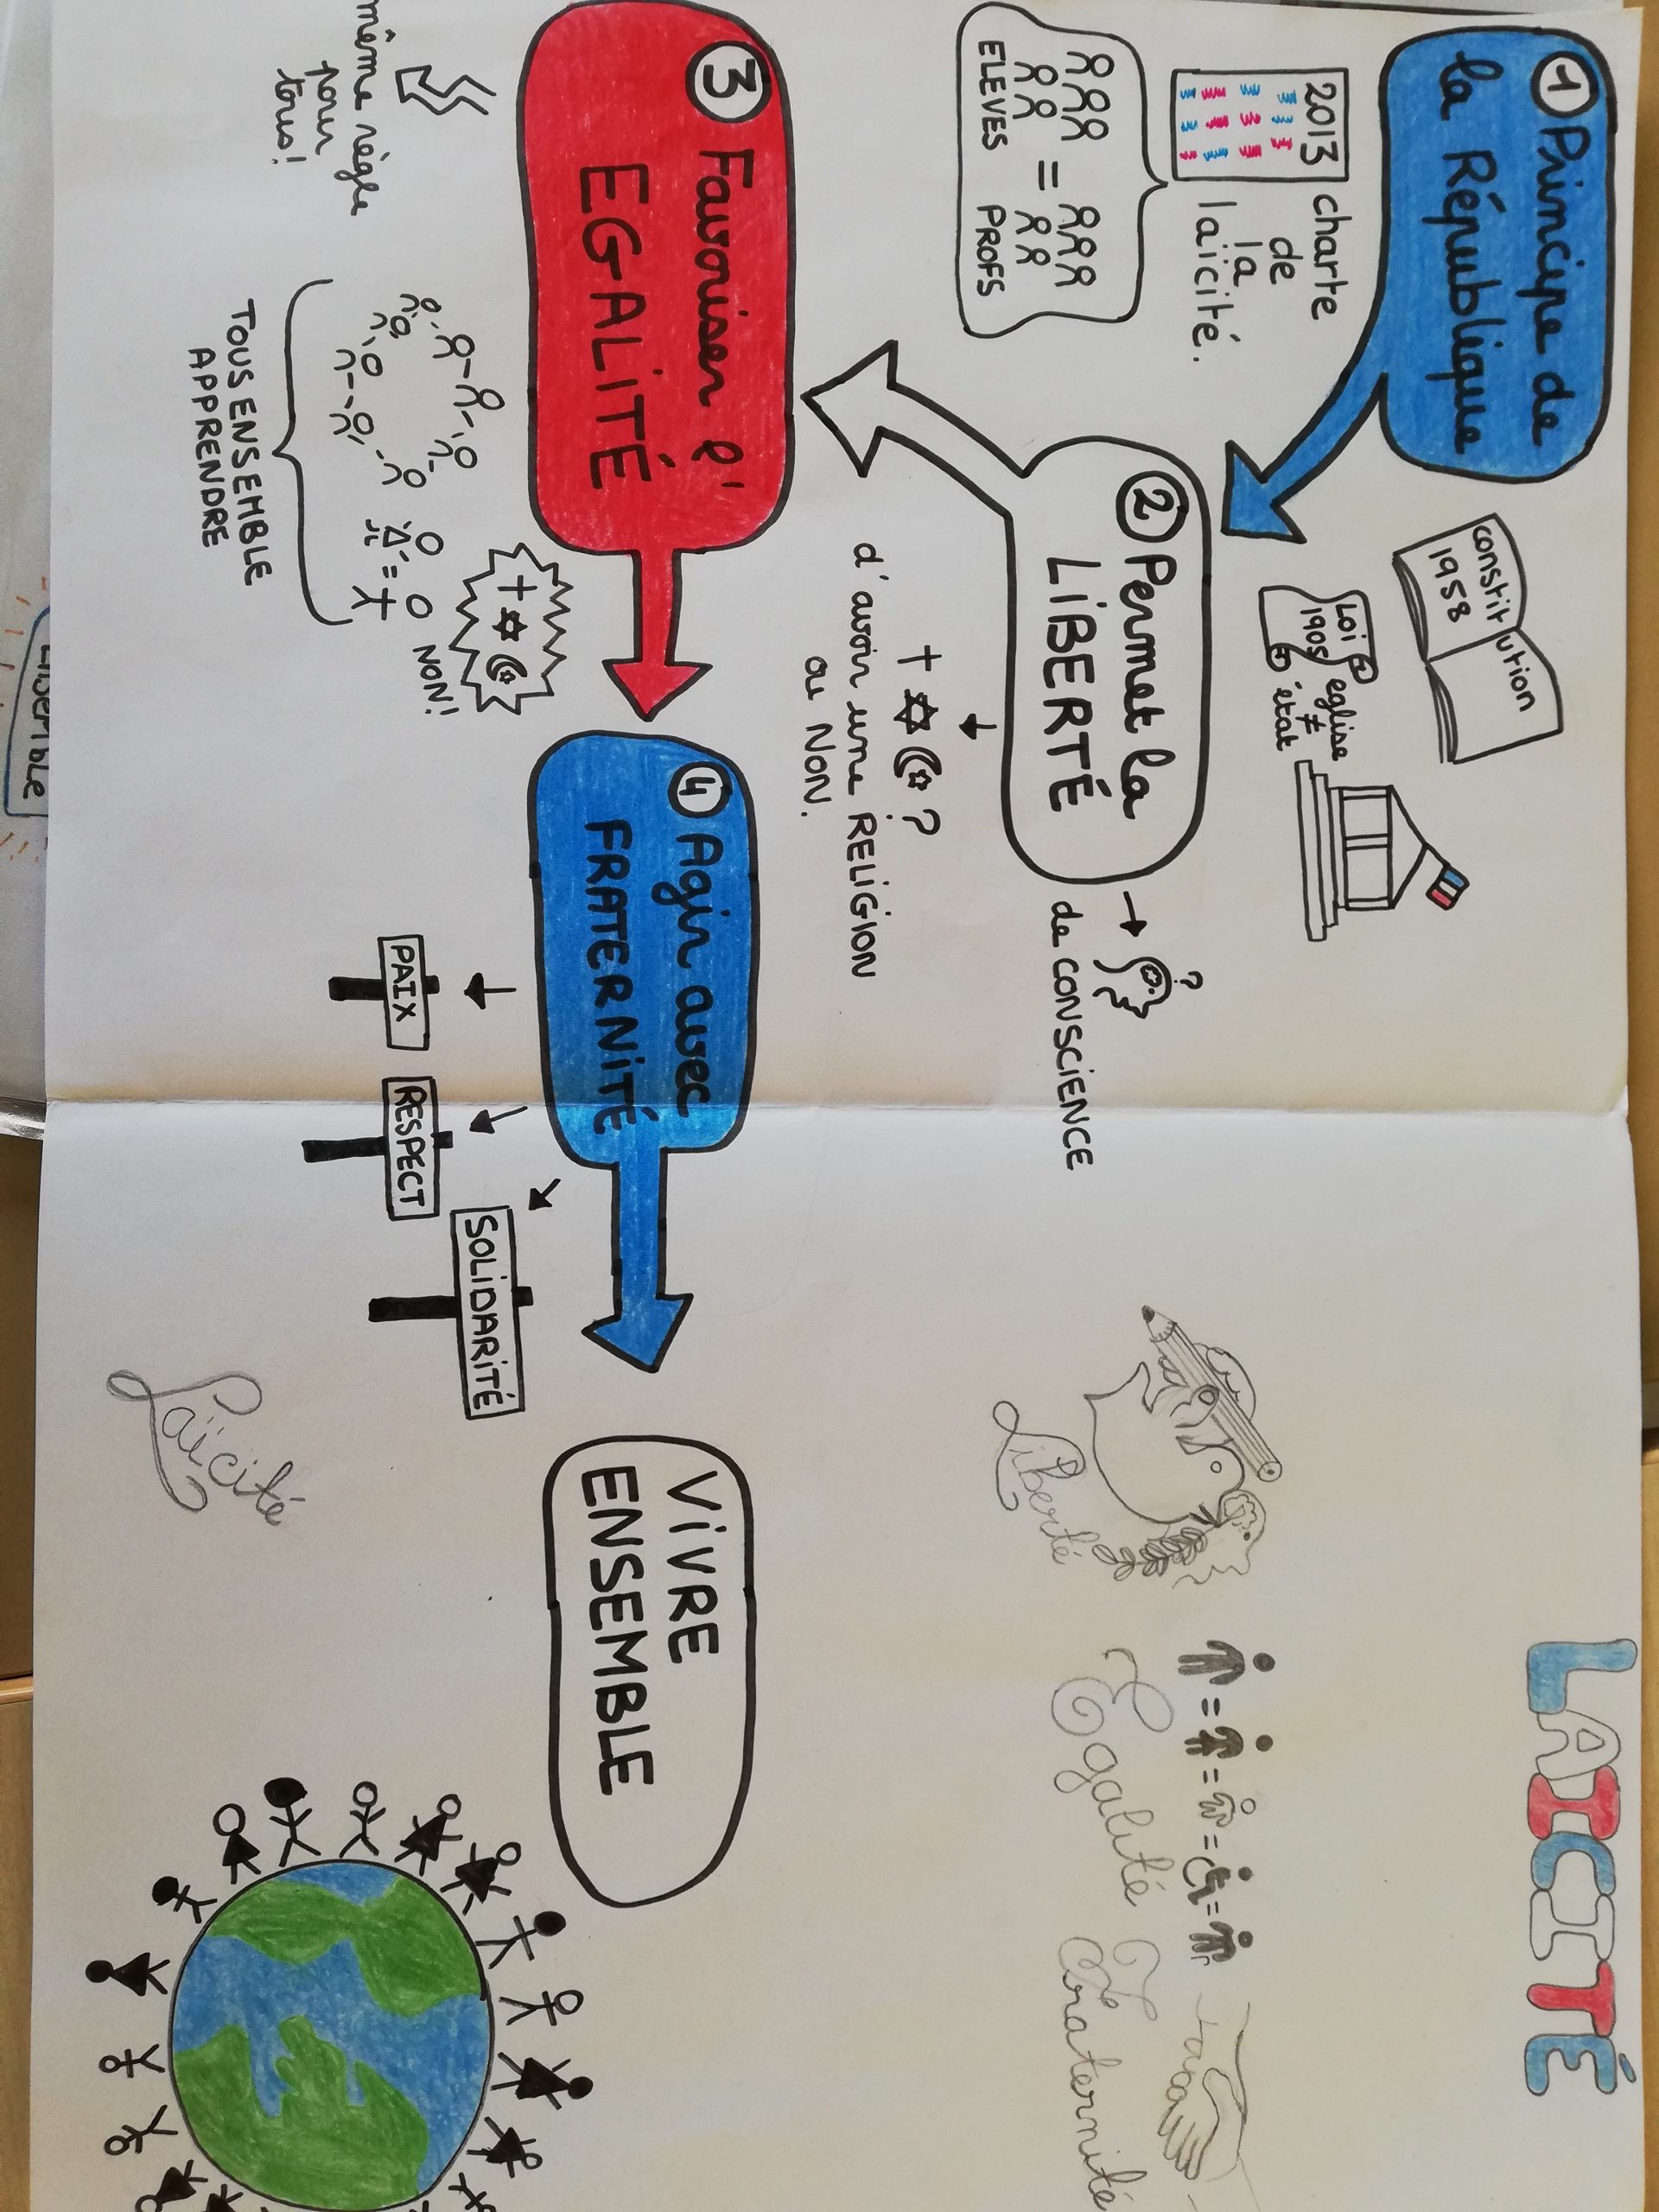 ① Principe de
la République
2013
charte
de
la
laïcité.
ELEVES = PROFS
constitution
1958
Loi
1905
église
≠
état
② Permet la
LIBERTÉ
de CONSCIENCE
?
?
d'avoir une RELIGION
ou NON.
③ Favoriser l'
EGALITÉ
même règle
pour
tous!
NON!
TOUS ENSEMBLE
APPRENDRE
④ Agir avec
FRATERNITÉ
PAIX
RESPECT
SOLIDARITÉ
VIVRE
ENSEMBLE
LAICITÉ
Liberté
Egalité
Fraternité
Laicité
Ensemble